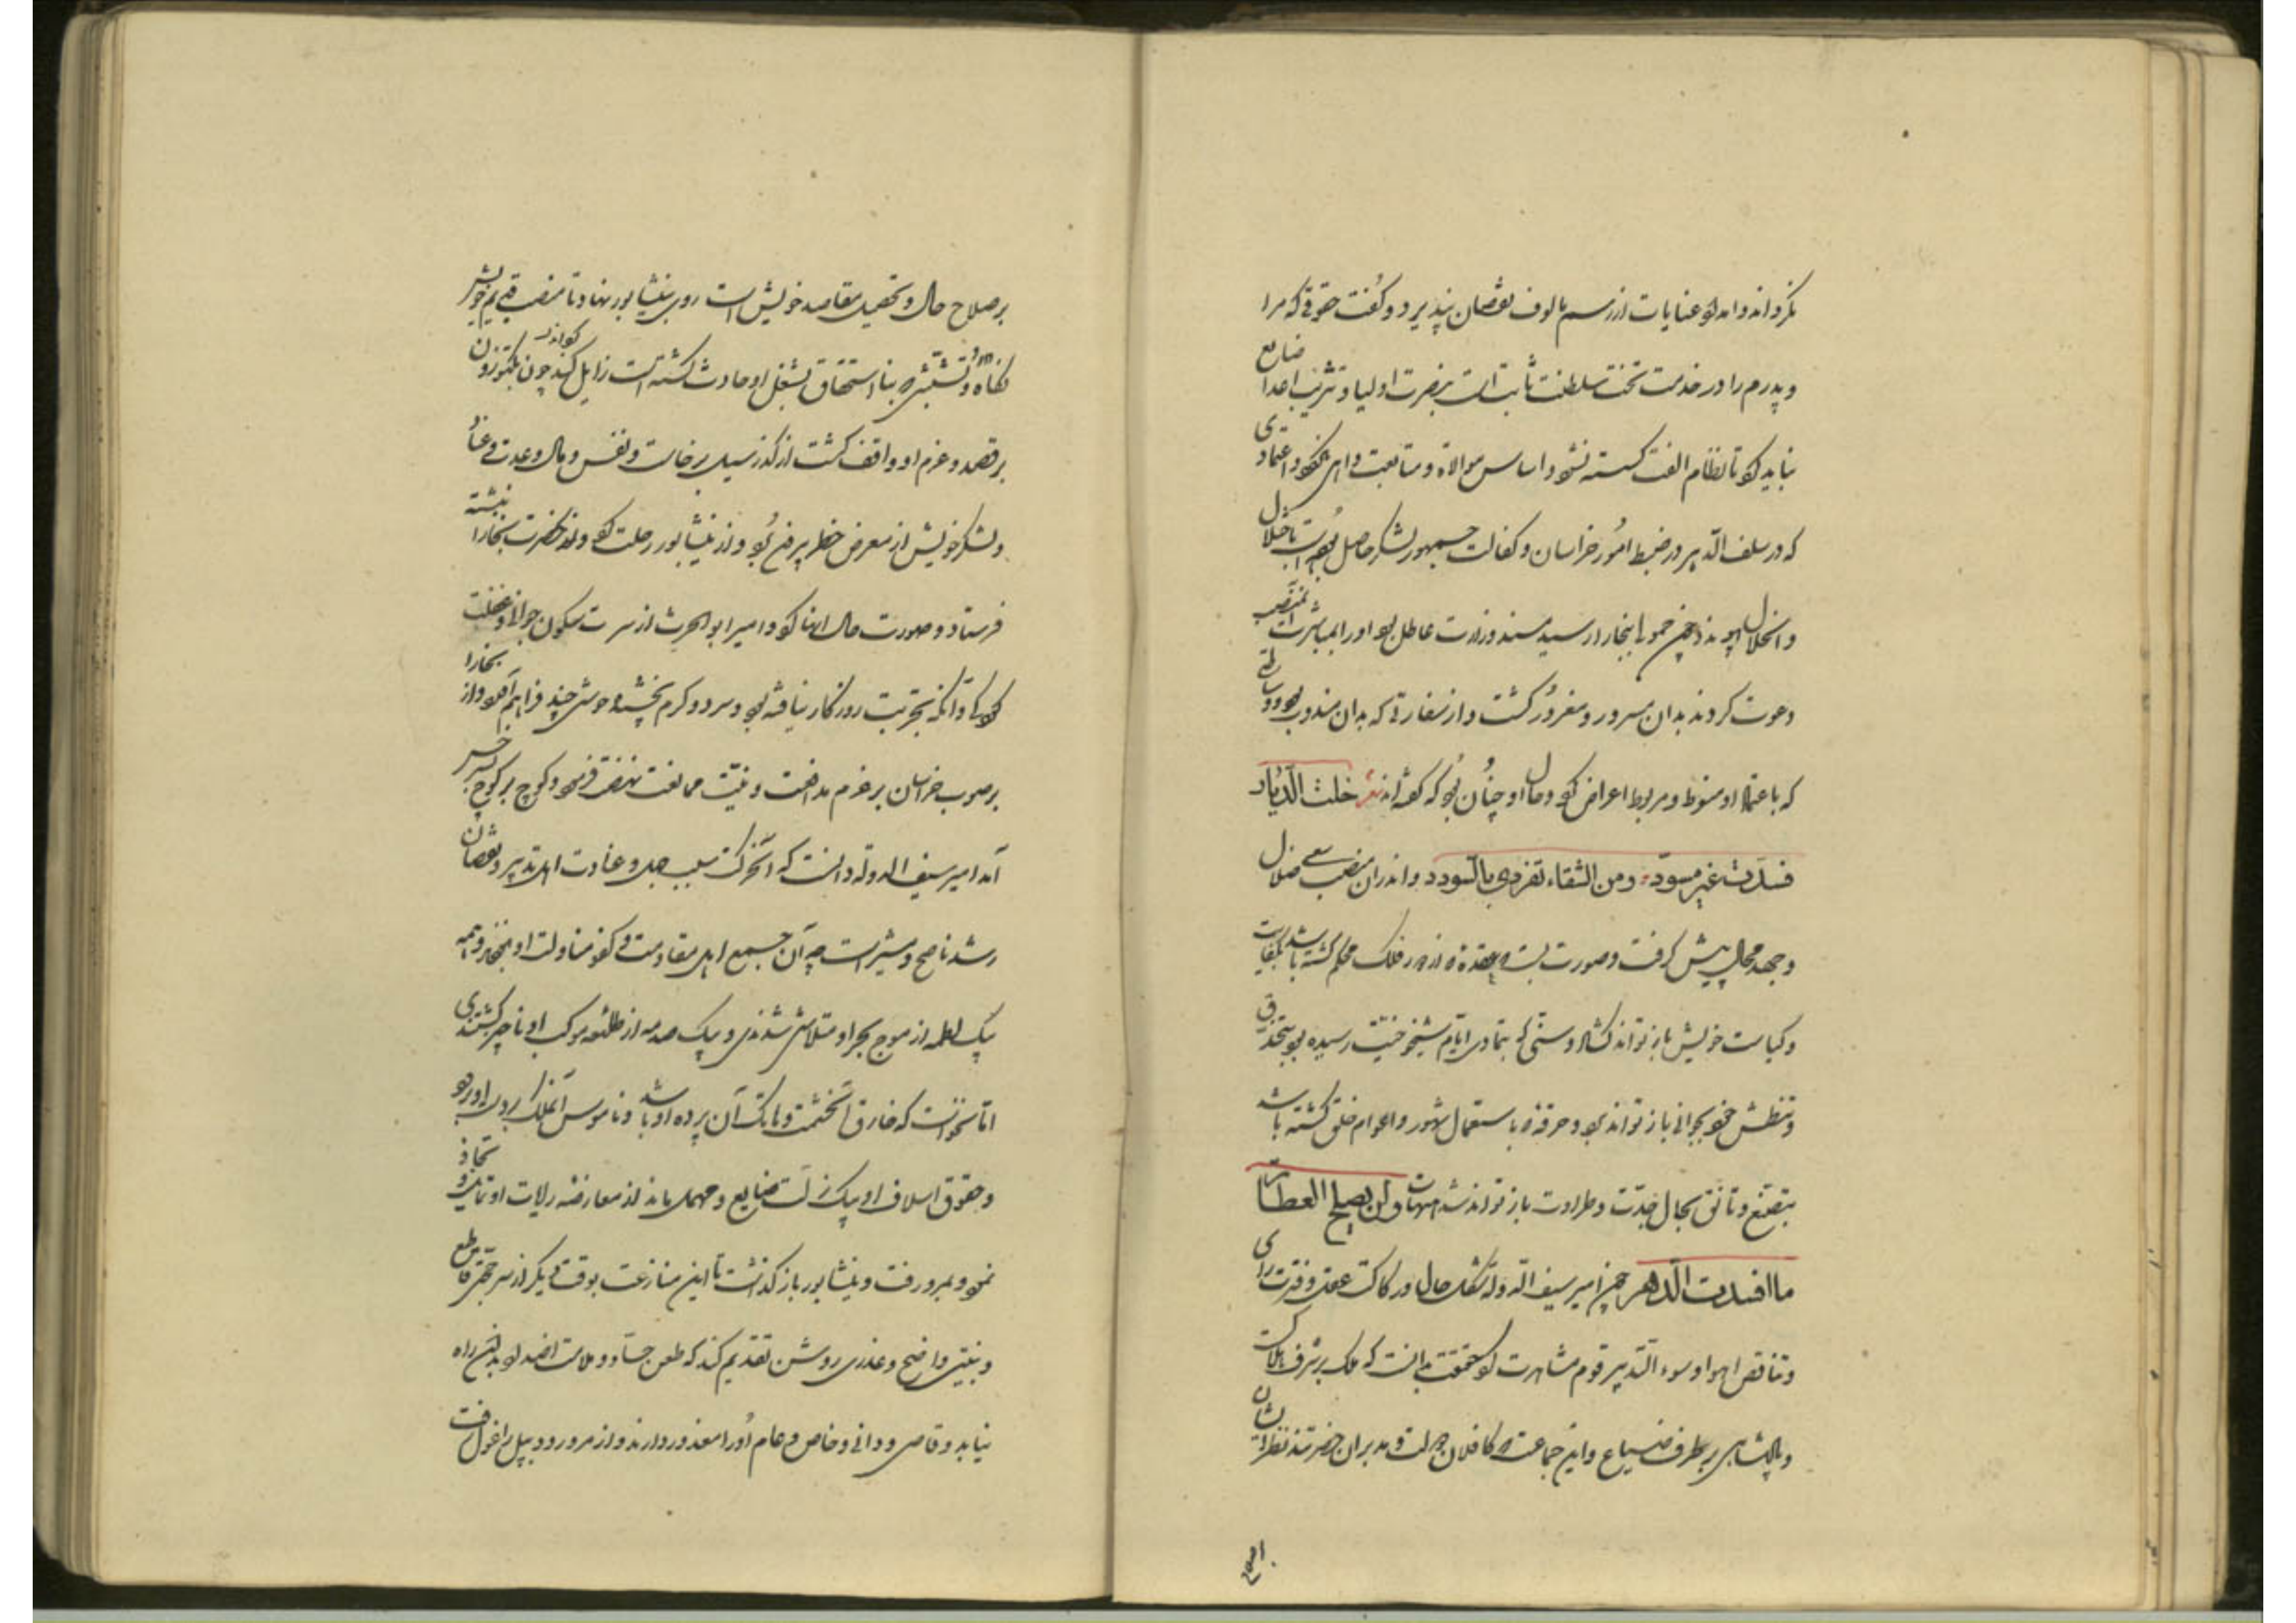 نکرداند و امداد عنایات از رسم مالوف نقصان نپذیرد و گفت حقوقی که مرا
و پدرم را در خدمت تخت سلطنت ثابت است بنصرت اولیا و اعدا ضایع
نباید کرد تا نظام الفت گسسته نشود و اساس موالاة و متابعت واهی نگردد و اعتمادی
که در سلف الدهر در ضبط امور خراسان و کفالت جمهور لشکر حاصل بوده است باختلال
و انحلال نپیوندد چون حمولی ببخارا رسید مسند وزارت عاطل بود او را بمباشرت آن منصب
دعوت کردند بدان مسرور و مغرور گشت و از سفارتی که بدان مندوب بود و وساطتی
که باعتماد او منوط و مربوط اعراض کرد و حال او چنان بود که گفته‌اند شعر خلت الدیار
فسدت غیر مسوّد ومن الشقاء تفردی بالسودد و اندران منصب سعی ضلال
و جهد محال پیش گرفت و صورت بست که عقده‌ که از دور فلک محکم گشته باشد بکفایت
و کیاست خویش باز تواند گشاد و سنی که بتمادی ایام شیخوخیت رسیده بود بتحذق
و خود بجوانی باز تواند برد و خرقه‌ که باستعمال شهور و اعوام خلق گشته باشد
بتصنع و تانق بحال جدت و طراوت باز تواند هیهات ولن یصلح العطار
ما افسدت الدهر چون امیر سیف الدوله حال و رکاکت عقل و فترت رای
و تناقض اهوا و سوء التدبیر قوم مشاهدت کرد بحقیقت بدانست که ملک بر شرف هلاکست
و پادشاهی بر طرف ضیاع و این جماعت که کافلان دولت و مدبران حضرتند نظر ایشان
بر صلاح حال و تحصیل مقاصد خویش است روی بنیشابور نهاد تا منصب قدیم خویش
نگاه دارد که بنا استحقاق بشغل او حادث گشته است زایل کند چون بکتوزون
بر قصد و عزم او واقف گشت از گذر سیل برخاست و نفس و مال و عدت و عتاد
و لشکر خویش از معرض خطر بیرون برد و از نیشابور رحلت کرد و نزد حضرت بخارا نبشته
فرستاد و صورت حال انها کرد و امیر ابوالحرث از سر سکون جوانی و غفلت
کودکی و آنکه تجربت روزگار نیافته بود و سرد و گرم نچشیده حوشی چند فراهم آورد و از بخارا
بر صوب خراسان بر عزم مدافعت و نیت ممانعت نهضت فرمود و کوچ بر کوچ بسرخس
آمد امیر سیف الدوله دانست که آن حرکت بسبب جهل و غادت اهل تدبیر و نقصان
رشد ناصح و مشیر است چه آن جمع اهل مقاومت و کفو مناولت او نبودند و همه
بیک لطمه از موج بحر او متلاشی شدندی و بیک صدمه از طلیعه موکب او ناچیز گشتندی
اما نخواست که خارق آن حشمت و هاتک آن پرده او باشد و ناموس آن ملک بر دست او رود
و حقوق اسلاف او بیک زلت ضایع و مهمل ماند از معارضه رایات او
نمود و بمرو رفت و نیشابور باز گذاشت تا این منازعت بوقت دیگر از سر حجتی قاطع
و بینتی واضح و عذری روشن تقدیم کند که طعن حساد و ملامت اضداد بدان راه
نیابد و قاصی و دانی و خاص و عام او را معذور دارند و از مرورود بپل راغول رفت